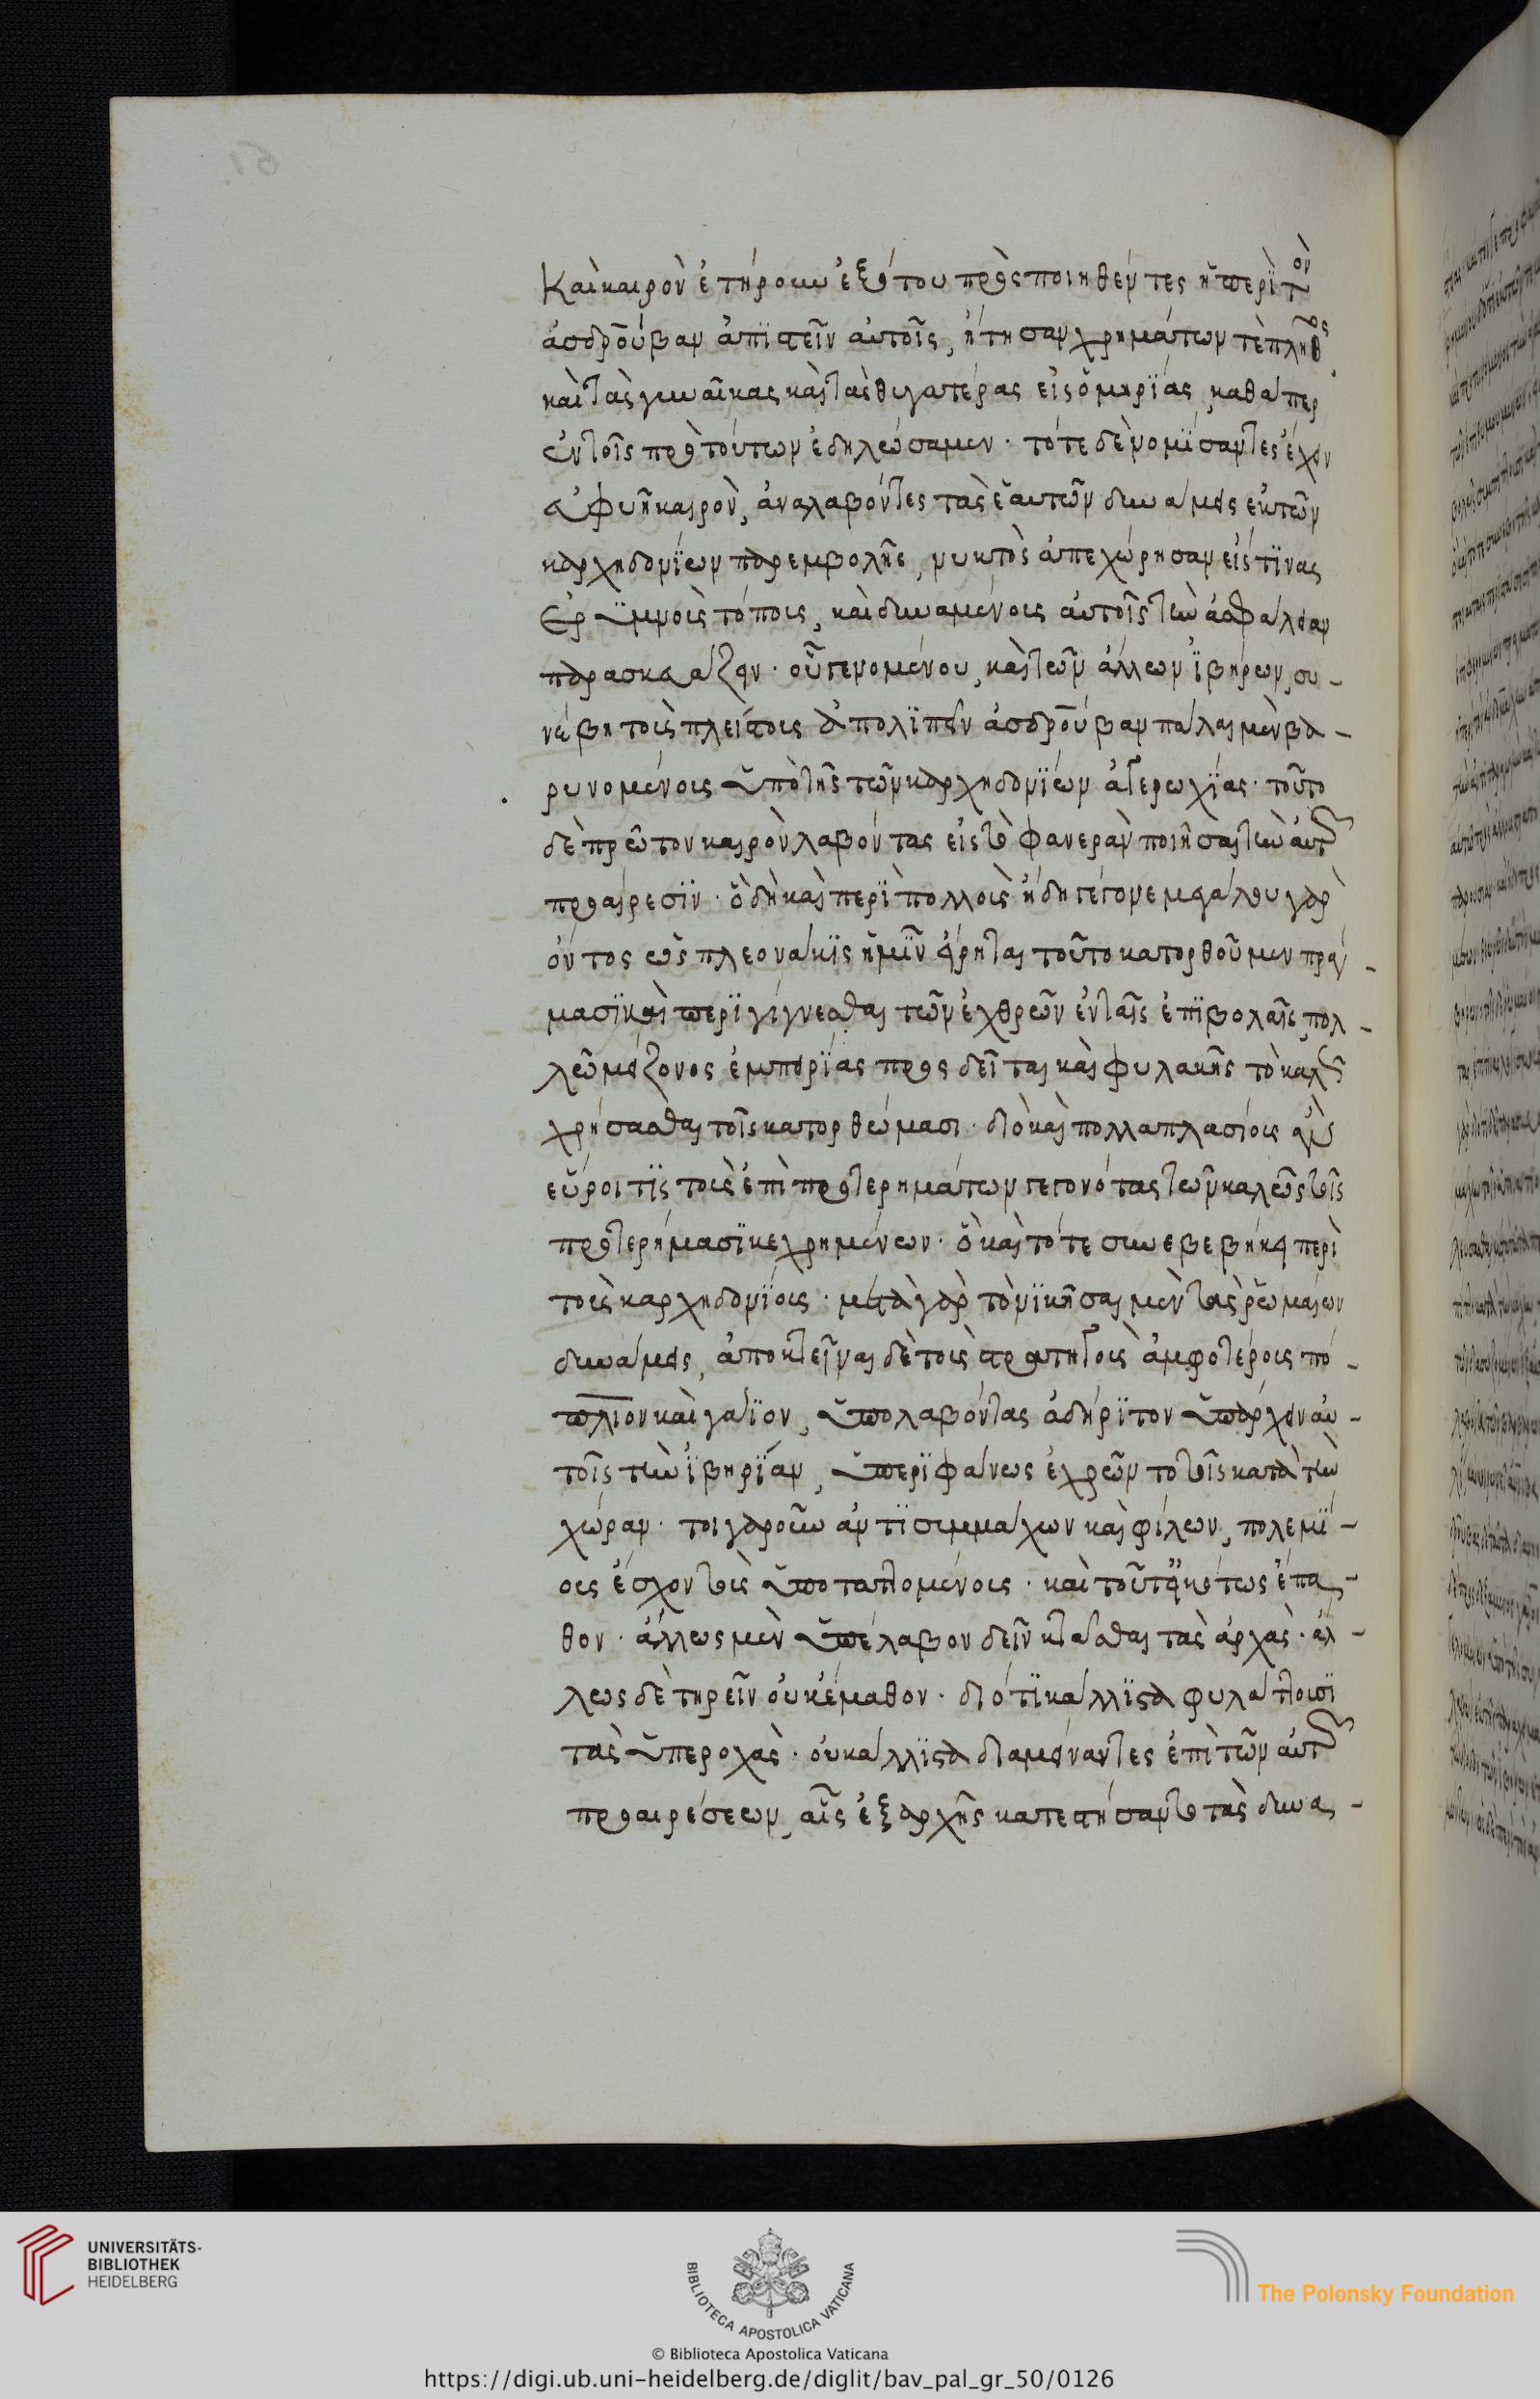 καὶ καιρὸν ἐτήρουν ἐξ ὅτου προσποιηθέντες ἢ περὶ τὸν
ἀσδρούβαν ἀπιστεῖν αὐτοῖς, ἤτησαν χρημάτων τὲ πλῆθος
καὶ τὰς γυναῖκας καὶ τὰς θυγατέρας εἰς ὁμηρίας, καθάπερ
ἐν τοῖς πρὸ τούτων ἐδηλώσαμεν. τότε δὲ νομίσαντες ἔχειν
εὐφυῆ καιρὸν, ἀναλαβόντες τὰς ἑαυτῶν δυνάμεις ἐκ τῶν
καρχηδονίων παρεμβολῆς, νυκτὸς ἀπεχώρησαν εἴς τινας
ἐρυμνοὺς τόπους, καὶ δυναμένους αὐτοῖς τὴν ἀσφάλειαν
παρασκευάζειν. οὗ γενομένου, καὶ τῶν ἄλλων ἰβήρων, συ-
νέβη τοὺς πλείστους ἀπολιπεῖν ἀσδρούβαν πάλαι μὲν βα-
ρυνομένους ὑπὸ τῆς τῶν καρχηδονίων ἀγερωχίας. τοῦτο
δὲ πρῶτον καιρὸν λαβόντας εἰς τὸ φανερὰν ποιῆσαι τὴν αὐτῶν
προαίρεσιν. ὃ δὴ καὶ περὶ πολλοὺς ἤδη γέγονε μεγάλου γὰρ
ὄντος ὡς πλεονάκις ἡμῖν εἴρηται τοῦ τὸ κατορθοῦμεν πράγ-
μασι καὶ περιγίγνεσθαι τῶν ἐχθρῶν ἐν ταῖς ἐπιβολαῖς, πολ-
λῶ μείζονος ἐμπειρίας προσδεῖται καὶ φυλακῆς τὸ καλῶς
χρήσασθαι τοῖς κατορθώμασι. διὸ καὶ πολλαπλασίους ἂν
εὕροι τὶς τοὺς ἐπὶ προτερημάτων γεγονότας τῶν καλῶς τοῖς
προτερήμασι κεχρημένων. ὃ καὶ τότε συνεβεβήκει περὶ
τοὺς καρχηδονίους. μετὰ γὰρ τὸ νικῆσαι μὲν τὰς ῥωμαίων
δυνάμεις, ἀποκτεῖναι δὲ τοὺς στρατηγοὺς ἀμφοτέρους πό-
πλιον καὶ γάϊον, ὑπολαβόντας ἀδήριτον ὑπάρχειν αὐ-
τοῖς τὴν ἰβηρίαν, ὑπεριφάνως ἐχρῶντο τοῖς κατὰ τὴν
χώραν. τοιγαροῦν ἀντὶ συμμάχων καὶ φίλων, πολεμί-
ους ἔσχον τοὺς ὑποταττομένους. καὶ τοῦτ' εἰκότως ἔπα-
θον. ἄλλως μὲν ὑπέλαβον δεῖν κτᾶσθαι τὰς ἀρχὰς. ἄλ-
λως δὲ τηρεῖν οὐκ ἔμαθον. διότι κάλλιστα φυλάττουσι
τὰς ὑπεροχὰς. οὐ κάλλιστα διαμείναντες ἐπὶ τῶν αὐτῶν
προαιρέσεων, αἷς ἐξ ἀρχῆς κατεστήσαντο τὰς δυνα-
UNIVERSITÄTS-
BIBLIOTHEK
HEIDELBERG
BIBLIOTECA APOSTOLICA VATICANA
The Polonsky Foundation
© Biblioteca Apostolica Vaticana
https://digi.ub.uni-heidelberg.de/diglit/bav_pal_gr_50/0126